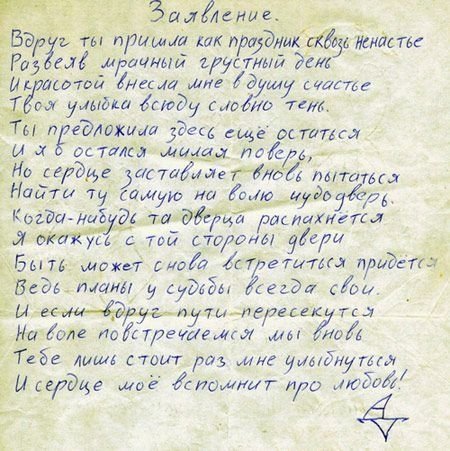 Заявление.
Вдруг ты пришла как праздник сквозь ненастье
Развеяв мрачный грустный день
И красотой внесла мне в душу счастье
Твоя улыбка всюду словно тень.
Ты предложила здесь ещё остаться
И я б остался милая поверь,
Но сердце заставляет вновь пытаться
Найти ту самую на волю чудодверь.
Когда-нибудь та дверца распахнётся
Я окажусь с той стороны двери
Быть может снова встретиться придётся
Ведь планы у судьбы всегда свои.
И если вдруг пути пересекутся
На воле повстречаемся мы вновь
Тебе лишь стоит раз мне улыбнуться
И сердце моё вспомнит про любовь!